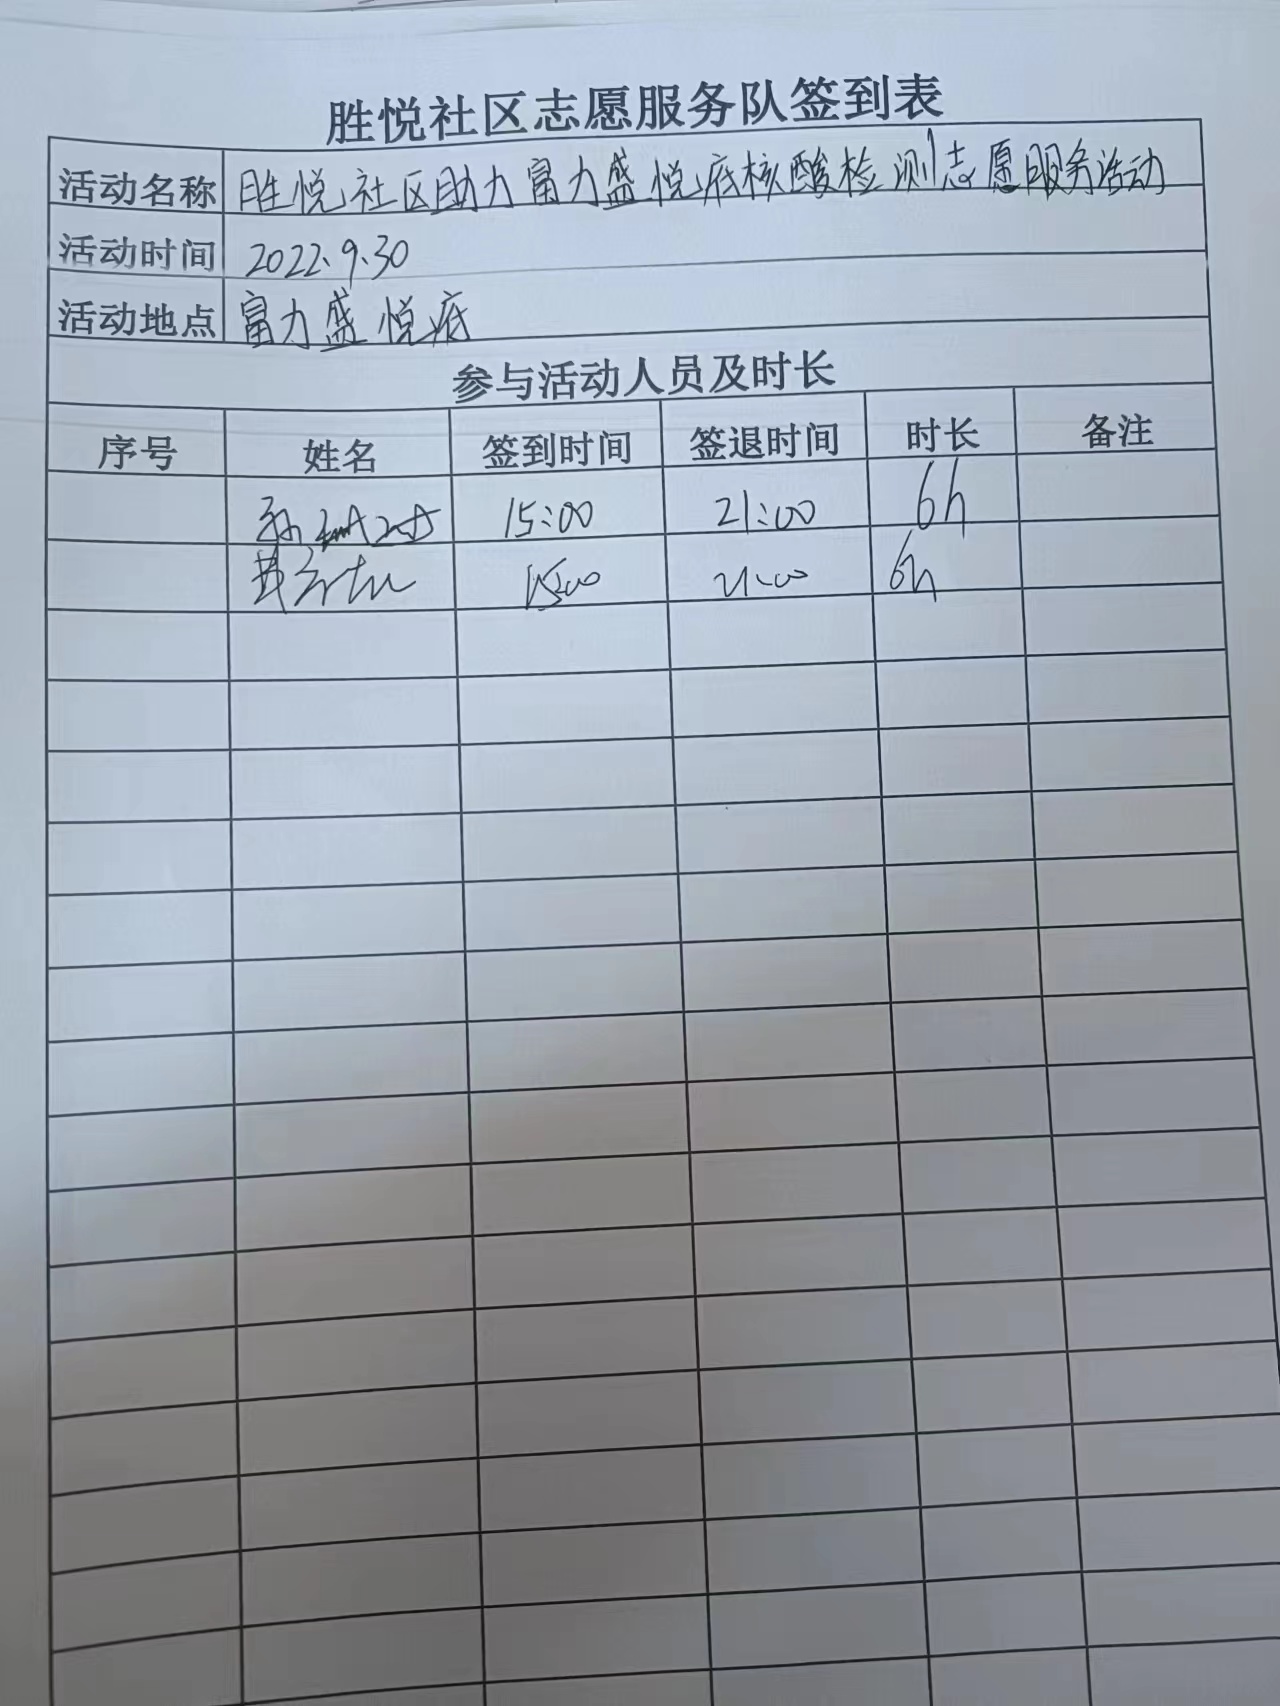 胜悦社区志愿服务队签到表
活动名称 胜悦社区助力富力盛悦府核酸检测志愿服务活动
活动时间 2022.9.30
活动地点 富力盛悦府
参与活动人员及时长
序号 姓名 签到时间 签退时间 时长 备注
15:00 21:00 6h
15:00 21:00 6h